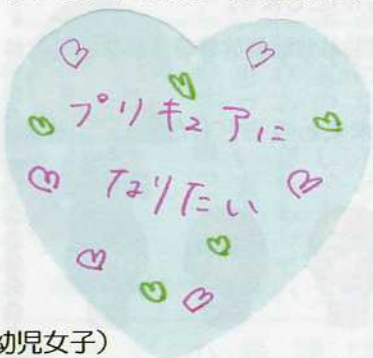 プリキュアに
なりたい
幼児女子）